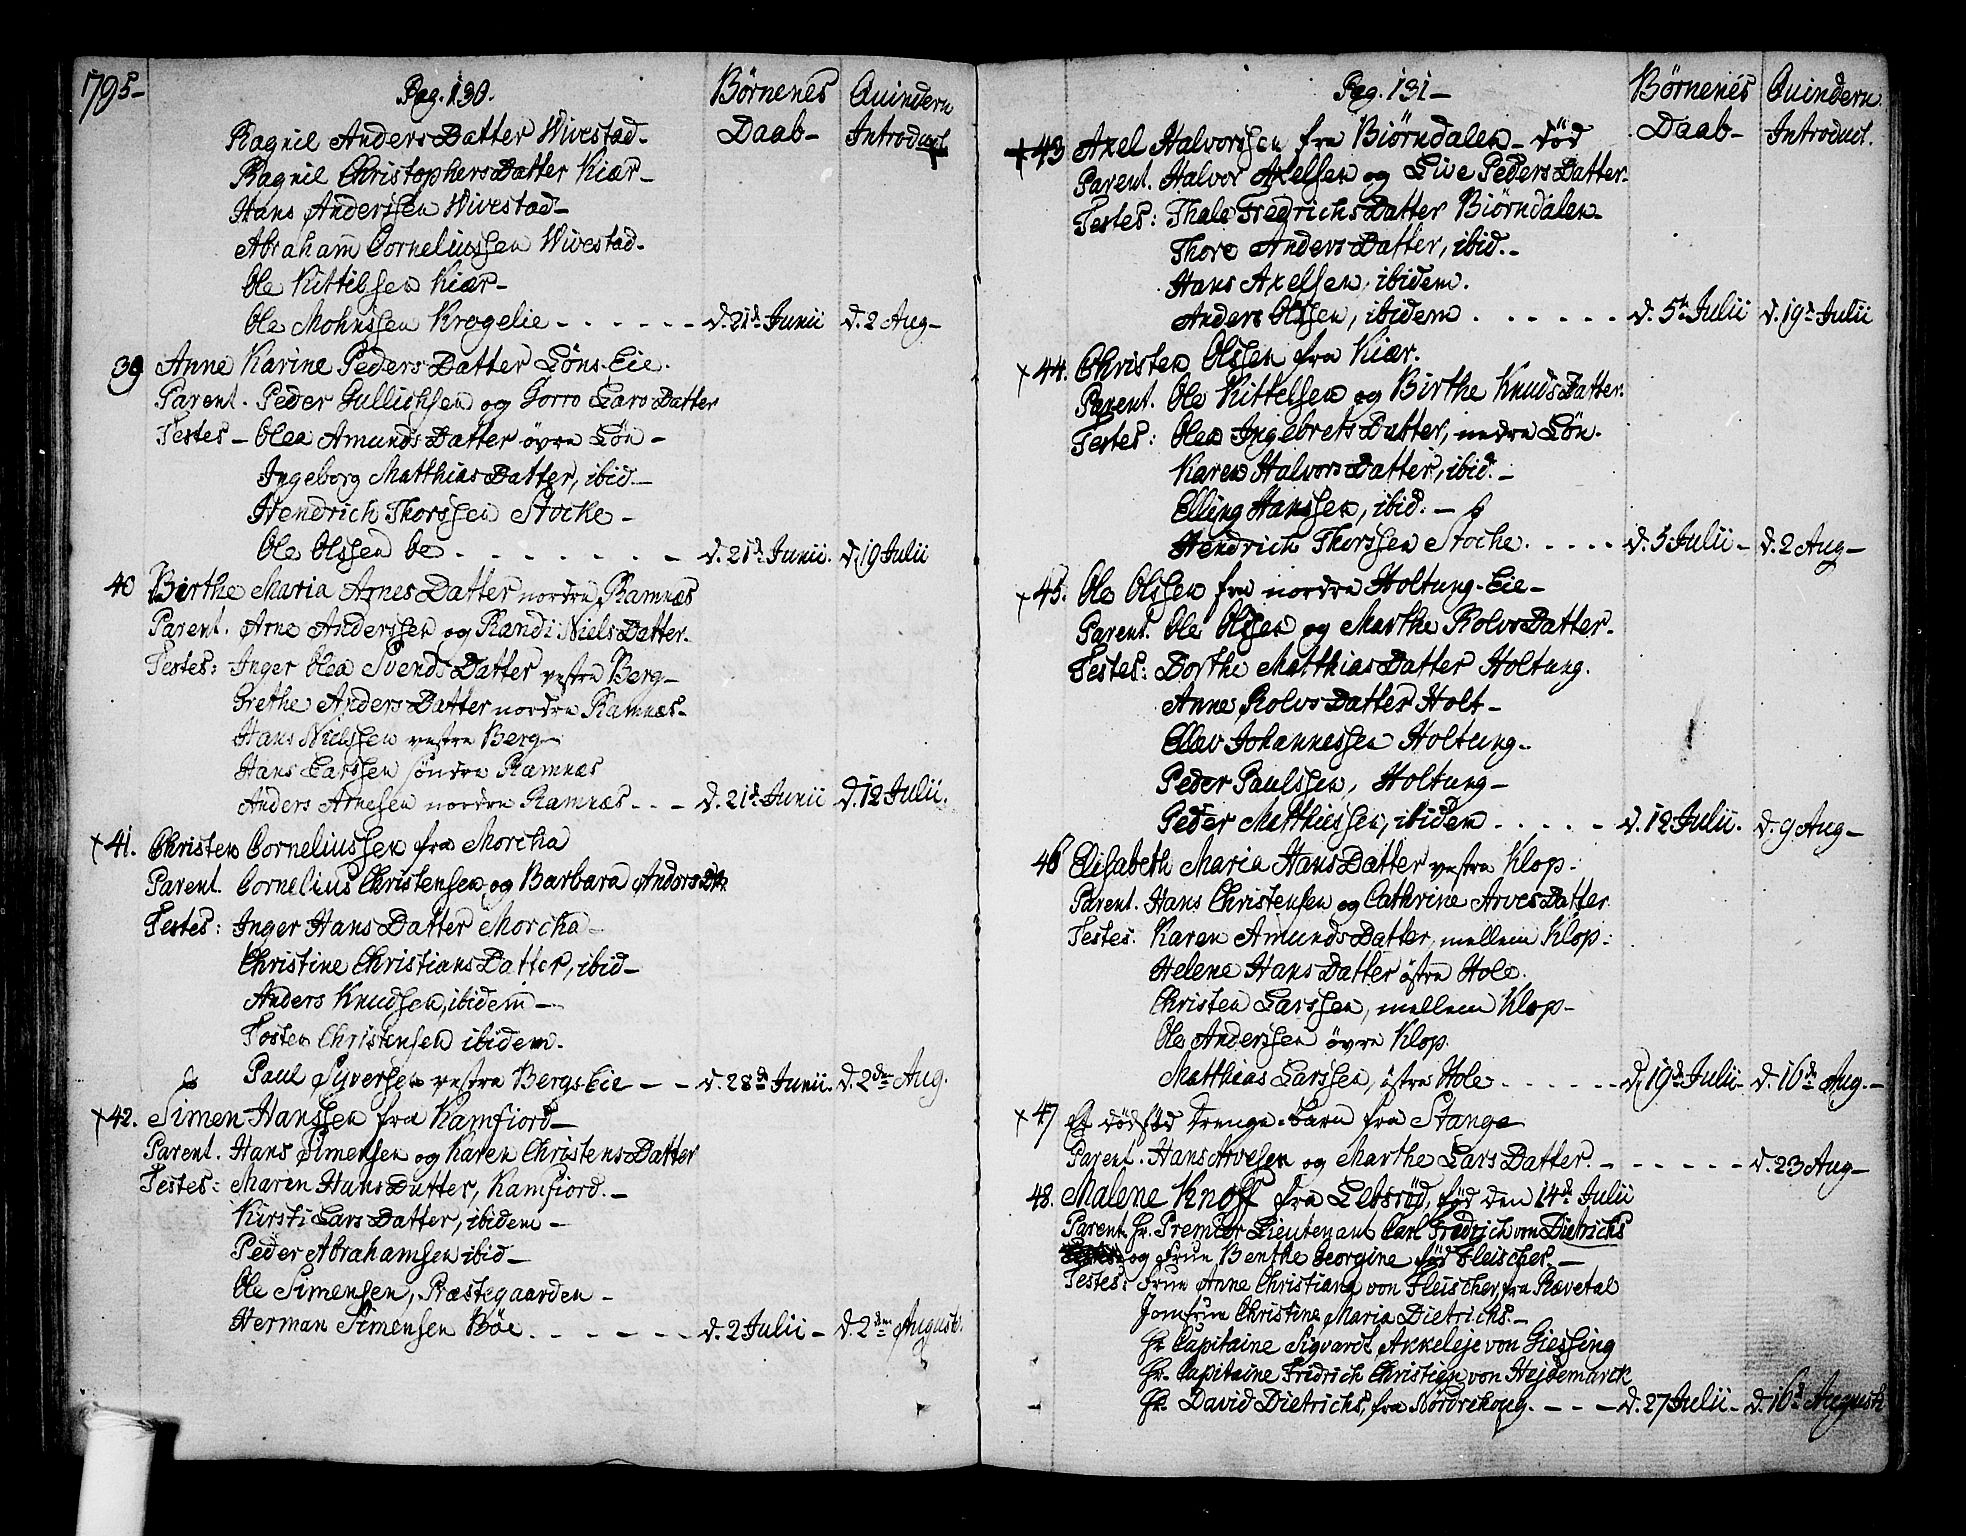 1795-
Pag. 130.
Børnenes Daab-
Quindern Introduct.
Ragnil Anders Datter Wivestad-
Ragnil Christophers Datter Kiær-
Hans Anderssen Wivestad-
Abraham Corneliussen Wivestad-
Ole Kittilssen Kiær-
Ole Mohnssen Krogelie - - - - - d. 21de Junii d. 2 Aug-
39 Anne Karine Peders Datter Løns-Eie.
Parent. Peder Gullichsen og Gorro Lars Datter
Testes- Olea Amunds Datter øvre Løn-
Ingeborg Matthias Datter, ibid.-
Hendrich Thorssen Stocke-
Ole Olssen be - - - - - - - d. 21de Junii. d. 19 Julii
40 Birthe Maria Arnes Datter nordre Ramnæs
Parent. Arne Anderssen og Randi Niels Datter.
Testes: Inger Olea Svends Datter vestre Berg-
Grethe Anders Datter nordre Ramnæs-
Hans Nielssen vestre Berg-
Hans Larssen søndre Ramnæs
Anders Arnesen nordre Ramnæs - - - d. 21de Junii d. 12 Julii.
+ 41. Christen Corneliussen fra Morcka
Parent. Cornelius Christensen og Barbara Anders Dtr.
Testes: Inger Hans Datter Morcka-
Christine Christians Datter, ibid-
Anders Knudsen, ibidem-
Tosten Christensen ibidem.
Paul Syversen vestre Bergs Eie - - d. 28de Junii. d. 2den Aug.
+ 42. Simen Hanssen fra Kamfiord-
Parent. Hans Simensen og Karen Christens Datter
Testes: Maren Hans Datter, Kamfiord.-
Kirsti Lars Datter, ibidem-
Peder Abrahamsen ibid-
Ole Simensen, Præstegaarden-
Herman Simensen Bøe - - - - - d. 2 Julii- d. 2den Augusti.
Pag. 131-
Børnenes Daab-
Quindern Introduct.
+ 43 Axel Halvorssen fra Biørndalen- død
Parent. Halvor Axelsen og Live Peders Datter-
Testes: Thale Fredrichs Datter Biørndalen-
Thore Anders Datter, ibid.-
Hans Axelsen, ibidem.
Anders Olssen, ibidem - - - - - d. 5te Julii d. 19de Julii
+ 44. Christen Olssen fra Kiær.
Parent. Ole Kittelsen og Birthe Knuds Datter.
Testes: Olea Ingebrets Datter, nedre Løn.
Karen Halvors Datter, ibid.-
Elling Hanssen, ibid.-
Hendrich Thorssen Stocke - - - - d. 5 Julii- d. 2 Aug-
+ 45. Ole Olssen fra nordre Holtung-Eie-
Parent. Ole Olssen og Marthe Rolvs Datter-
Testes: Dorthe Matthias Datter Holtung.
Anne Rolvs Datter Holt-
Ellev Johannessen Holtung-
Peder Paulssen, Holtung-
Peder Matthiessen, ibidem - - - - - d. 12 Julii. d. 9 Aug-
46 Elisabeth Maria Hans Datter vestre Klop.
Parent. Hans Christensen og Cathrine Arves Datter
Testes. Karen Amunds Datter, mellem Klop.
Helene Hans Datter østre Hole.
Christen Larssen, mellem Klop-
Ole Anderssen øvre Klop.
Matthias Larssen, østre Hole - - - - - d. 19de Julii- d. 16de Aug.-
+ 47 Et dødfød Drenge-barn fra Stange
Parent. Hans Arvesen og Marthe Lars Datter. - - - - - d. 23 Aug-
48. Malene Knoff fra Lebsrød, fød den 14de Julii
Parent. Hr. Premier Lieutenant Carl Fredrich von Dietrichs
og Frue Benthe Georgine fød Fleischer.-
Testes: Frue Anne Christiana von Fleischer, fra Rævetal
Jomfrue Christine Maria Dietrichs.-
Hr. Capitaine Sigvardt Akkeleje von Giessing
Hr. Capitaine Fredrich Christian von Hejdemarck
Hr. David Dietrichs, fra Nordrehoug. - - - d. 27 Julii- d. 16de Augusti